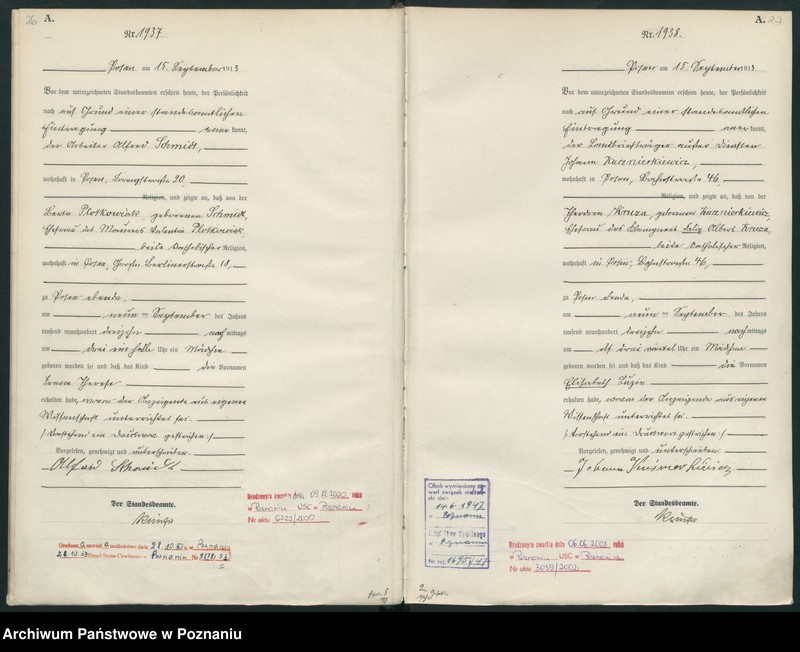 A.
Nr. 1937
Posen am 15 September 1913
Vor dem unterzeichneten Standesbeamten erschien heute, der Persönlichkeit
nach auf Grund einer standesamtlichen
Eintragung kannt,
der Arbeiter Alfred Schmidt,
wohnhaft in Posen, 20,
Religion, und zeigte an, daß von der
Berta Plotkowiak, geborenen Schmidt,
Ehefrau des Maurers Valentin Plotkowiak,
beide katholischer Religion,
wohnhaft in Posen, Große Berlinerstraße 18,
zu Posen ebenda,
am neun ten September des Jahres
tausend neunhundert dreizehn nachmittags
um drei ein halb Uhr ein Mädchen
geboren worden sei und daß das Kind den Vornamen
Irene Therese
erhalten habe, wovon der Anzeigende aus eigener
Wissenschaft unterrichtet sei.
/:Vorstehend ein Druckwort gestrichen:/
Vorgelesen, genehmigt und unterschrieben.
Alfred Schmidt
Der Standesbeamte.
Urodzonym zmarła dnia 09.12.2000 roku
w Poznaniu USC w Poznaniu
Nr aktu /2000
małżeństwo dnia
w Poznaniu
Urząd Stanu Cywilnego w Poznaniu Nr
A.
Nr. 1938.
Posen am 15 September 1913
Vor dem unterzeichneten Standesbeamten erschien heute, der Persönlichkeit
nach auf Grund einer standesamtlichen
Eintragung aner kannt,
der Landbriefträger außer Diensten
Johann Kaczmierkiewicz,
wohnhaft in Posen, 46,
Religion, und zeigte an, daß von der
Theodora Kruza, geborenen Kaczmierkiewicz,
Ehefrau des Albert Kruza,
beide katholischer Religion,
wohnhaft in Posen, 46,
zu Posen ebenda,
am neun ten September des Jahres
tausend neunhundert dreizehn nachmittags
um elf drei viertel Uhr ein Mädchen
geboren worden sei und daß das Kind die Vornamen
Elisabeth
erhalten habe, wovon der Anzeigende aus eigener
Wissenschaft unterrichtet sei.
/:Vorstehend ein Druckwort gestrichen:/
Vorgelesen, genehmigt und unterschrieben.
Johann
Der Standesbeamte.
Obok wymieniony za-
warł związek małżeń-
ski dnia
14.6.1947
w Poznaniu
Urząd Stanu Cywilnego
w Poznaniu
Nr rej. 1695/47
Urodzonym zmarła dnia 06.06.2002 roku
w Poznaniu USC w Poznaniu
Nr aktu 3039/2002
Archiwum Państwowe w Poznaniu